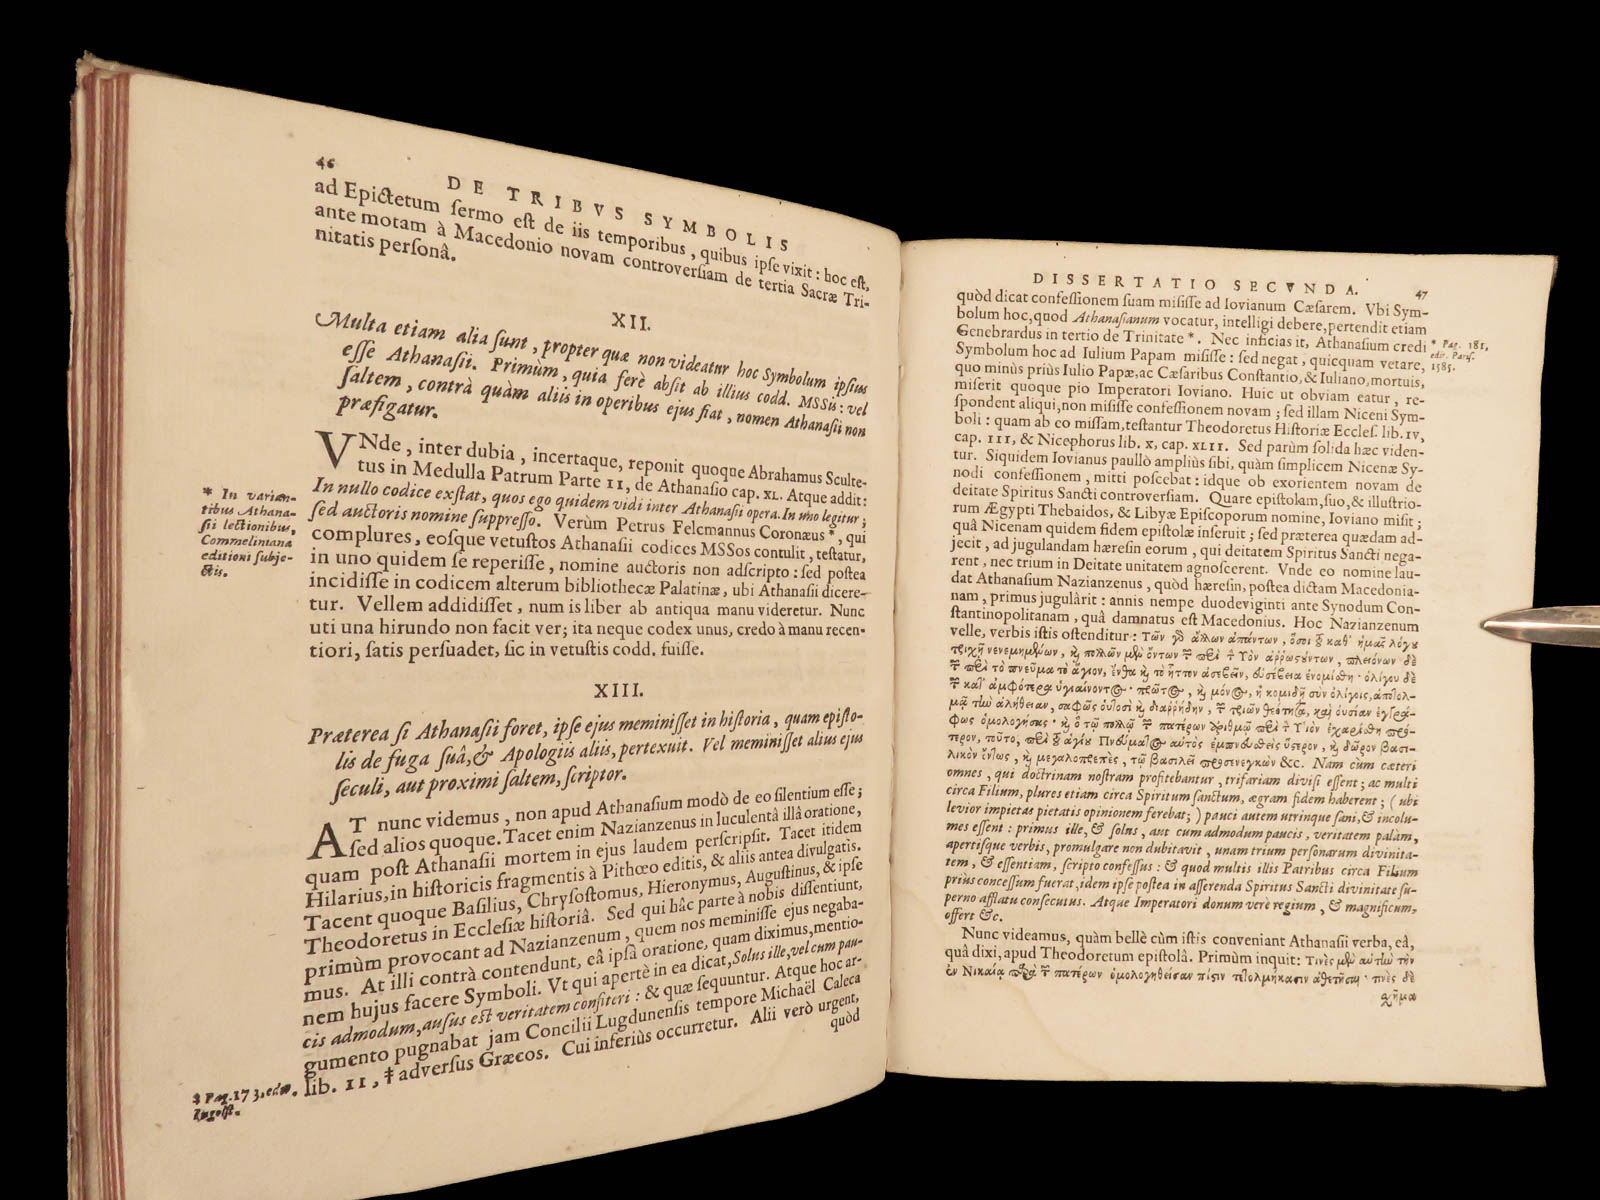 46
DE TRIBVS SYMBOLIS
ad Epictetum ſermo eſt de iis temporibus, quibus ipſe vixit: hoc eſt,
ante motam à Macedonio novam controverſiam de tertia Sacræ Tri-
nitatis perſonâ.
XII.
Multa etiam alia ſunt, propter quæ non videatur hoc Symbolum ipſius
eſſe Athanaſii. Primùm, quia ferè abſit ab illius codd. MSSis: vel
ſaltem, contrà quàm aliis in operibus ejus fiat, nomen Athanaſii non
præfigatur.
VNde, inter dubia, incertaque, reponit quoque Abrahamus Sculte-
tus in Medulla Patrum Parte II, de Athanaſio cap. XL. Atque addit:
In nullo codice exſtat, quos ego quidem vidi inter Athanaſii opera. In uno legitur;
ſed auctoris nomine ſuppreſſo. Verùm Petrus Felcmannus Coronæus*, qui
complures, eoſque vetuſtos Athanaſii codices MSSos contulit, teſtatur,
in uno quidem ſe reperiſſe, nomine auctoris non adſcripto: ſed poſtea
incidiſſe in codicem alterum bibliothecæ Palatinæ, ubi Athanaſii dicere-
tur. Vellem addidiſſet, num is liber ab antiqua manu videretur. Nunc
uti una hirundo non facit ver; ita neque codex unus, credo à manu recen-
tiori, ſatis perſuadet, ſic in vetuſtis codd. fuiſſe.
* In varian-
tibus Athana-
ſii lectionibus,
Commeliniana
editioni ſubje-
ctis.
XIII.
Præterea ſi Athanaſii foret, ipſe ejus meminiſſet in hiſtoria, quam epiſto-
lis de fuga ſuâ, & Apologiis aliis, pertexuit. Vel meminiſſet alius ejus
ſeculi, aut proximi ſaltem, ſcriptor.
AT nunc videmus, non apud Athanaſium modò de eo ſilentium eſſe;
ſed alios quoque. Tacet enim Nazianzenus in luculentâ illâ oratione,
quam poſt Athanaſii mortem in ejus laudem perſcripſit. Tacet itidem
Hilarius, in hiſtoricis fragmentis à Pithœo editis, & aliis antea divulgatis.
Tacent quoque Baſilius, Chryſoſtomus, Hieronymus, Auguſtinus, & ipſe
Theodoretus in Eccleſiæ hiſtoriâ. Sed qui hâc parte à nobis diſſentiunt,
primùm provocant ad Nazianzenum, quem nos meminiſſe ejus negaba-
mus. At illi contrà contendunt, eâ ipsâ oratione, quam diximus, mentio-
nem hujus facere Symboli. Vt qui apertè in ea dicat, Solus ille, vel cum pau-
cis admodum, auſus eſt veritatem confiteri: & quæ ſequuntur. Atque hoc ar-
gumento pugnabat jam Concilii Lugdunenſis tempore Michaël Caleca
lib. II, ‡ adverſus Græcos. Cui inferiùs occurretur. Alii verò urgent,
quòd
‡ Pag. 173, edit.
Ingolſt.
DISSERTATIO SECVNDA.
47
quòd dicat confeſſionem ſuam miſiſſe ad Iovianum Cæſarem. Vbi Sym-
bolum hoc, quod Athanaſianum vocatur, intelligi debere, pertendit etiam
Genebrardus in tertio de Trinitate*. Nec inficias it, Athanaſium credi
Symbolum hoc ad Iulium Papam miſiſſe: ſed negat, quicquam vetare,
quo minùs priùs Iulio Papæ, ac Cæſaribus Conſtantio, & Iuliano, mortuis,
miſerit quoque pio Imperatori Ioviano. Huic ut obviam eatur, re-
ſpondent aliqui, non miſiſſe confeſſionem novam; ſed illam Niceni Sym-
boli: quam ab eo miſſam, teſtantur Theodoretus Hiſtoriæ Eccleſ. lib. IV,
cap. III, & Nicephorus lib. X, cap. XLII. Sed parùm ſolida hæc viden-
tur. Siquidem Iovianus paullò ampliùs ſibi, quàm ſimplicem Nicenæ Sy-
nodi confeſſionem, mitti poſcebat: idque ob exorientem novam de
deitate Spiritus Sancti controverſiam. Quare epiſtolam, ſuo, & illuſtrio-
rum Ægypti Thebaidos, & Libyæ Epiſcoporum nomine, Ioviano miſit;
quâ Nicenam quidem fidem epiſtolæ inſeruit; ſed præterea quædam ad-
jecit, ad jugulandam hæreſin eorum, qui deitatem Spiritus Sancti nega-
rent, nec trium in Deitate unitatem agnoſcerent. Vnde eo nomine lau-
dat Athanaſium Nazianzenus, quòd hæreſin, poſtea dictam Macedonia-
nam, primus jugulârit: annis nempe duodeviginti ante Synodum Con-
ſtantinopolitanam, quâ damnatus eſt Macedonius. Hoc Nazianzenum
velle, verbis iſtis oſtenditur: Τῶν γὸ ἄλλων ἁπάντων, ὅσοι τ καθ' ἡμᾶς λόγου
τριχῆ νενεμημένων, καὶ πολλῶν μὲν ὄντων τ περὶ τ Υἱὸν ἀρρωςούντων, πλειόνων δὲ
τ περὶ τὸ πνεῦμα τὸ ἅγιον, ἔνθα καὶ τὸ ἧττον ἀσεβεῖν, εὐσέβεια ἐνομίσθη· ὀλίγου δὲ
τ κατ' ἀμφότερα ὑγιαίνοντος· πρῶτος, καὶ μόνος, ἢ κομιδῆ σὺν ὀλίγοις, ἀποτολ-
μᾷ τὴν ἀλήθειαν, σαφῶς οὑτοσὶ καὶ διαρρήδην, τ τριῶν θεότητα, καὶ οὐσίαν ἐγγρά-
φως ὁμολογήσας· καὶ ὃ τῷ πολλῷ τ πατέρων ἀριθμῷ περὶ τ Υἱὸν ἐχαρίσθη πρό-
τερον, τοῦτο, περὶ τ ἁγίου Πνεύματος αὐτὸς ἐμπνευσθεὶς ὕστερον, καὶ δῶρον βασι-
λικὸν ὄντως, καὶ μεγαλοπρεπὲς, τῷ βασιλεῖ προσενεγκών &c. Nam cùm cæteri
omnes, qui doctrinam noſtram profitebantur, trifariam diviſi eſſent; ac multi
circa Filium, plures etiam circa Spiritum ſanctum, ægram fidem haberent; (ubi
levior impietas pietatis opinionem ferebat;) pauci autem utrinque ſani, & incolu-
mes eſſent: primus ille, & ſolus, aut cum admodum paucis, veritatem palam,
apertiſque verbis, promulgare non dubitavit, unam trium perſonarum divinita-
tem, & eſſentiam, ſcripto confeſſus: & quod multis illis Patribus circa Filium
priùs conceſſum fuerat, idem ipſe poſtea in aſſerenda Spiritus Sancti divinitate ſu-
perno afflatu conſecutus. Atque Imperatori donum verè regium, & magnificum,
offert &c.
Nunc videamus, quàm bellè cùm iſtis conveniant Athanaſii verba, eâ,
quâ dixi, apud Theodoretum epiſtolâ. Primùm inquit: Τινὲς μὲν αὐτὴν τὴν
ἐν Νικαίᾳ παρὰ τ πατέρων ὁμολογηθεῖσαν πίςιν τετολμήκασιν ἀθετῆσαι· τινὲς δὲ
χῆμα
* Pag. 181,
edit. Pariſ.
1585.